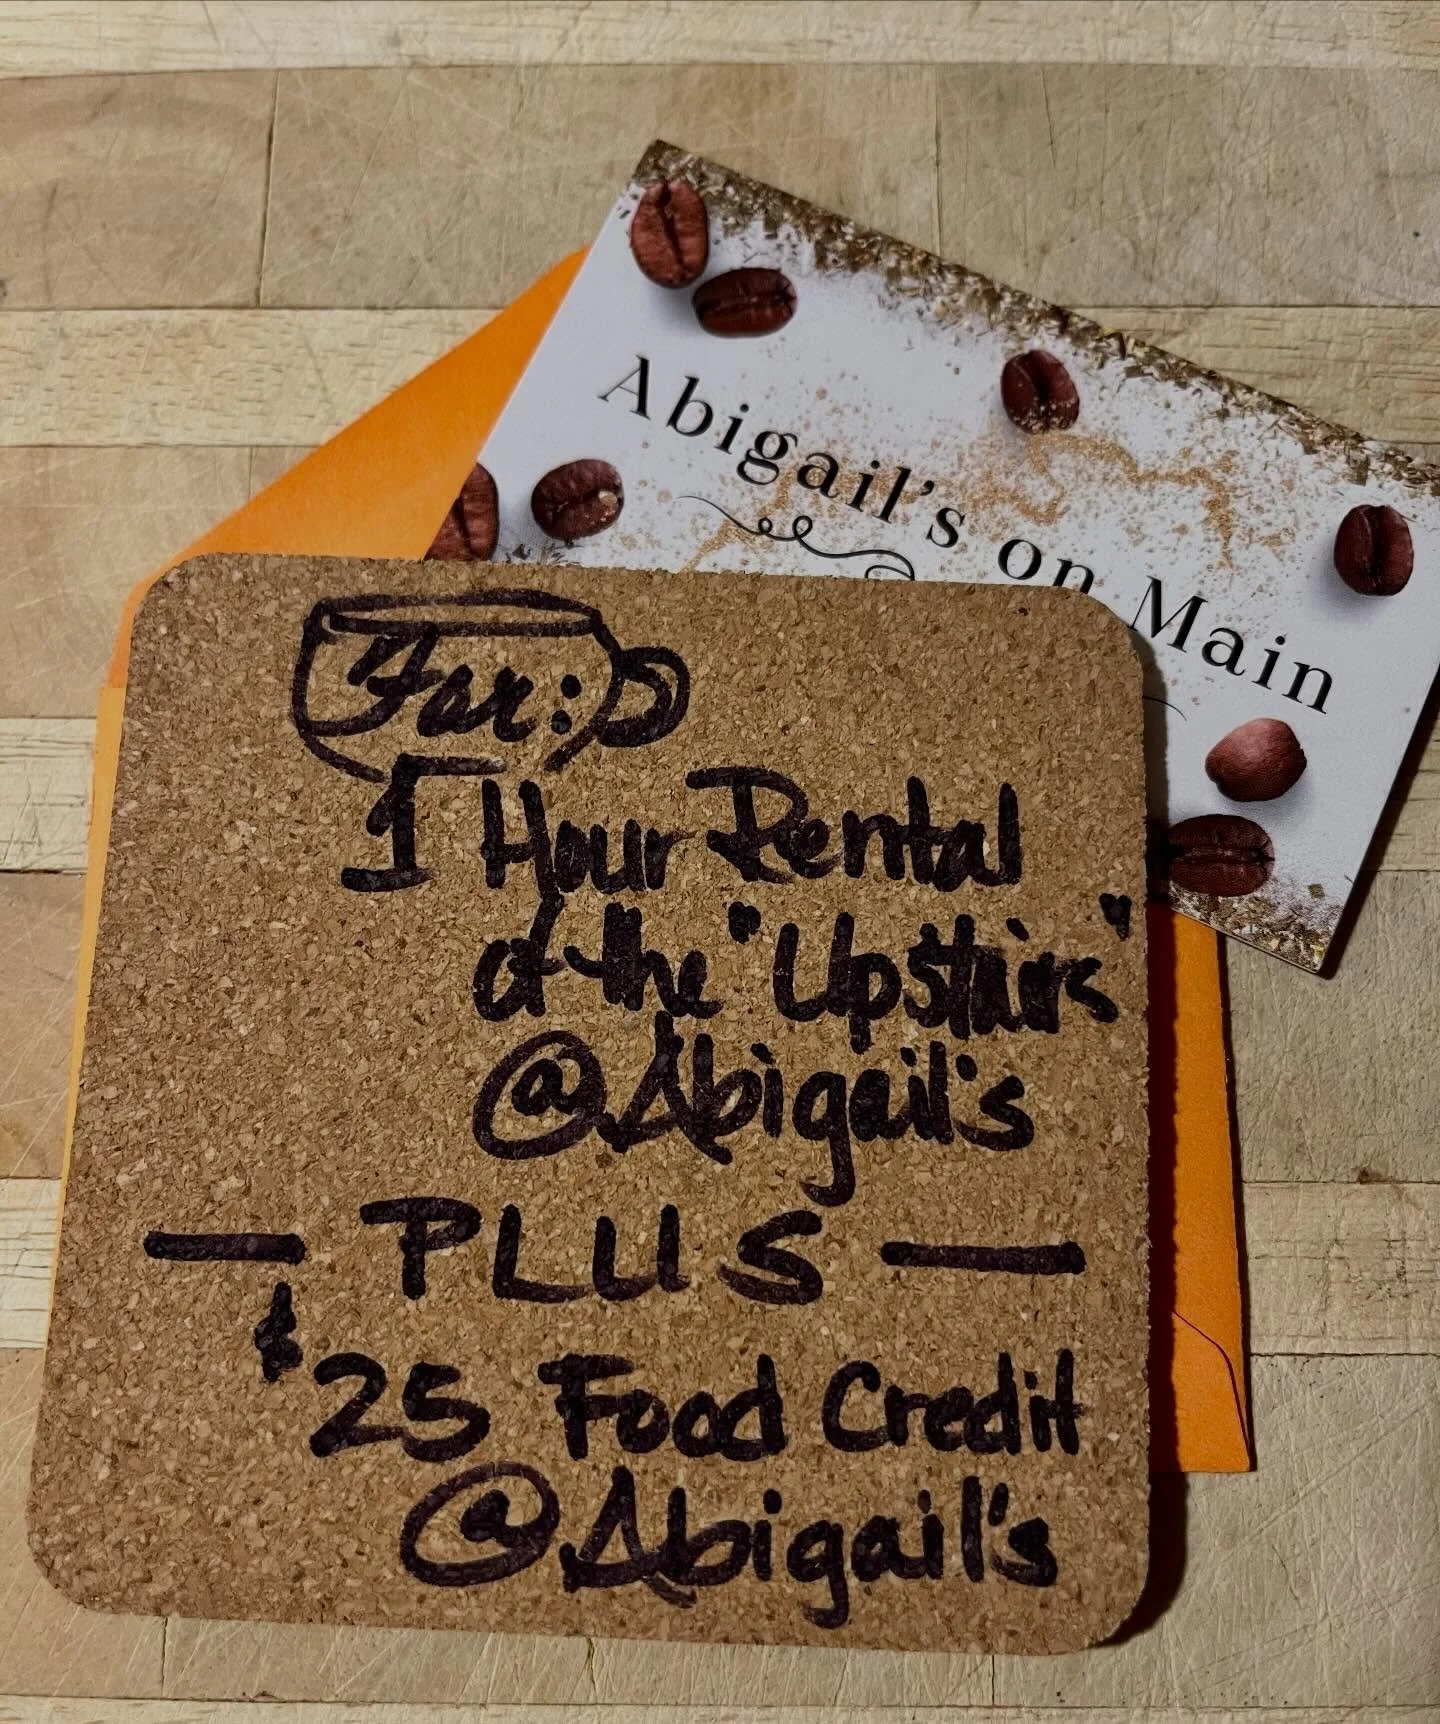 Abigail's on Main
For:
1 Hour Rental
of the "Upstairs"
@Abigail's
— PLUS —
$25 Food Credit
@Abigail's